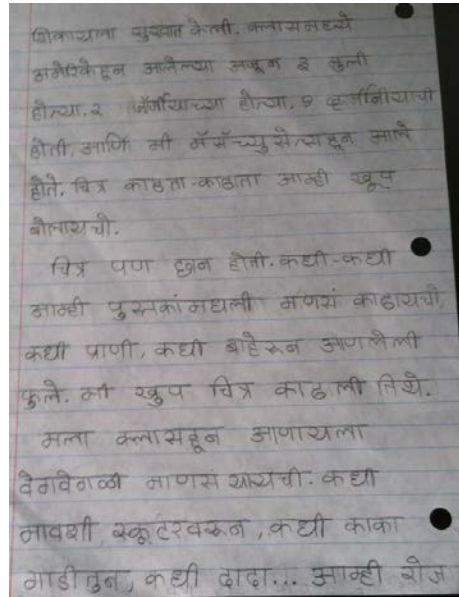 शिकायला सुरुवात केली. क्लासमध्ये
अमेरिकेहून आलेल्या अजून ३ मुली
होत्या. २ जॉर्जीयाच्या होत्या, १ व्हर्जीनियाची
होती, आणि मी मॅसॅच्युसेत्सहून आले
होते. चित्र काढता-काढता आम्ही खूप
बोलायचो.
चित्र पण छान होती. कधी-कधी
आम्ही पुस्तकांमधली माणसं काढायचो,
कधी पाणी, कधी बाहेरून आणलेली
फुले. मी खुप चित्र काढली तिथे.
मला क्लासहून आणायला
वेगवेगळी माणसं यायची. कधी
मावशी, स्कूटरवरून, कधी काका
गाडीतुन, कधी दादा... आम्ही रोज